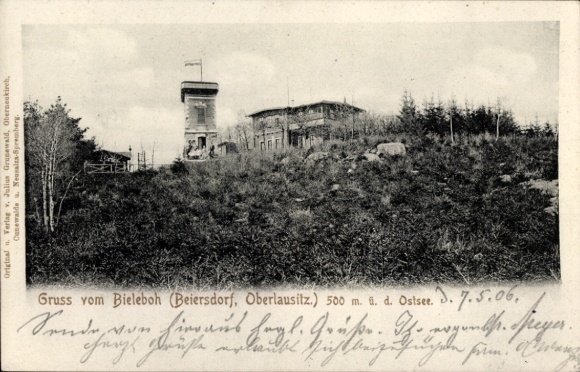 Original u. Verlag v. Julius Grunewald, Oberneukirch,
Cunewalde u. Neusalza-Spremberg.
Gruss vom Bieleboh (Beiersdorf, Oberlausitz.) 500 m. ü. d. Ostsee. d. 7.5.06.
Sende, von hieraus hrzl. Grüße. Th. Meyer.
herzl. Grüße erlaubt sich beizufügen